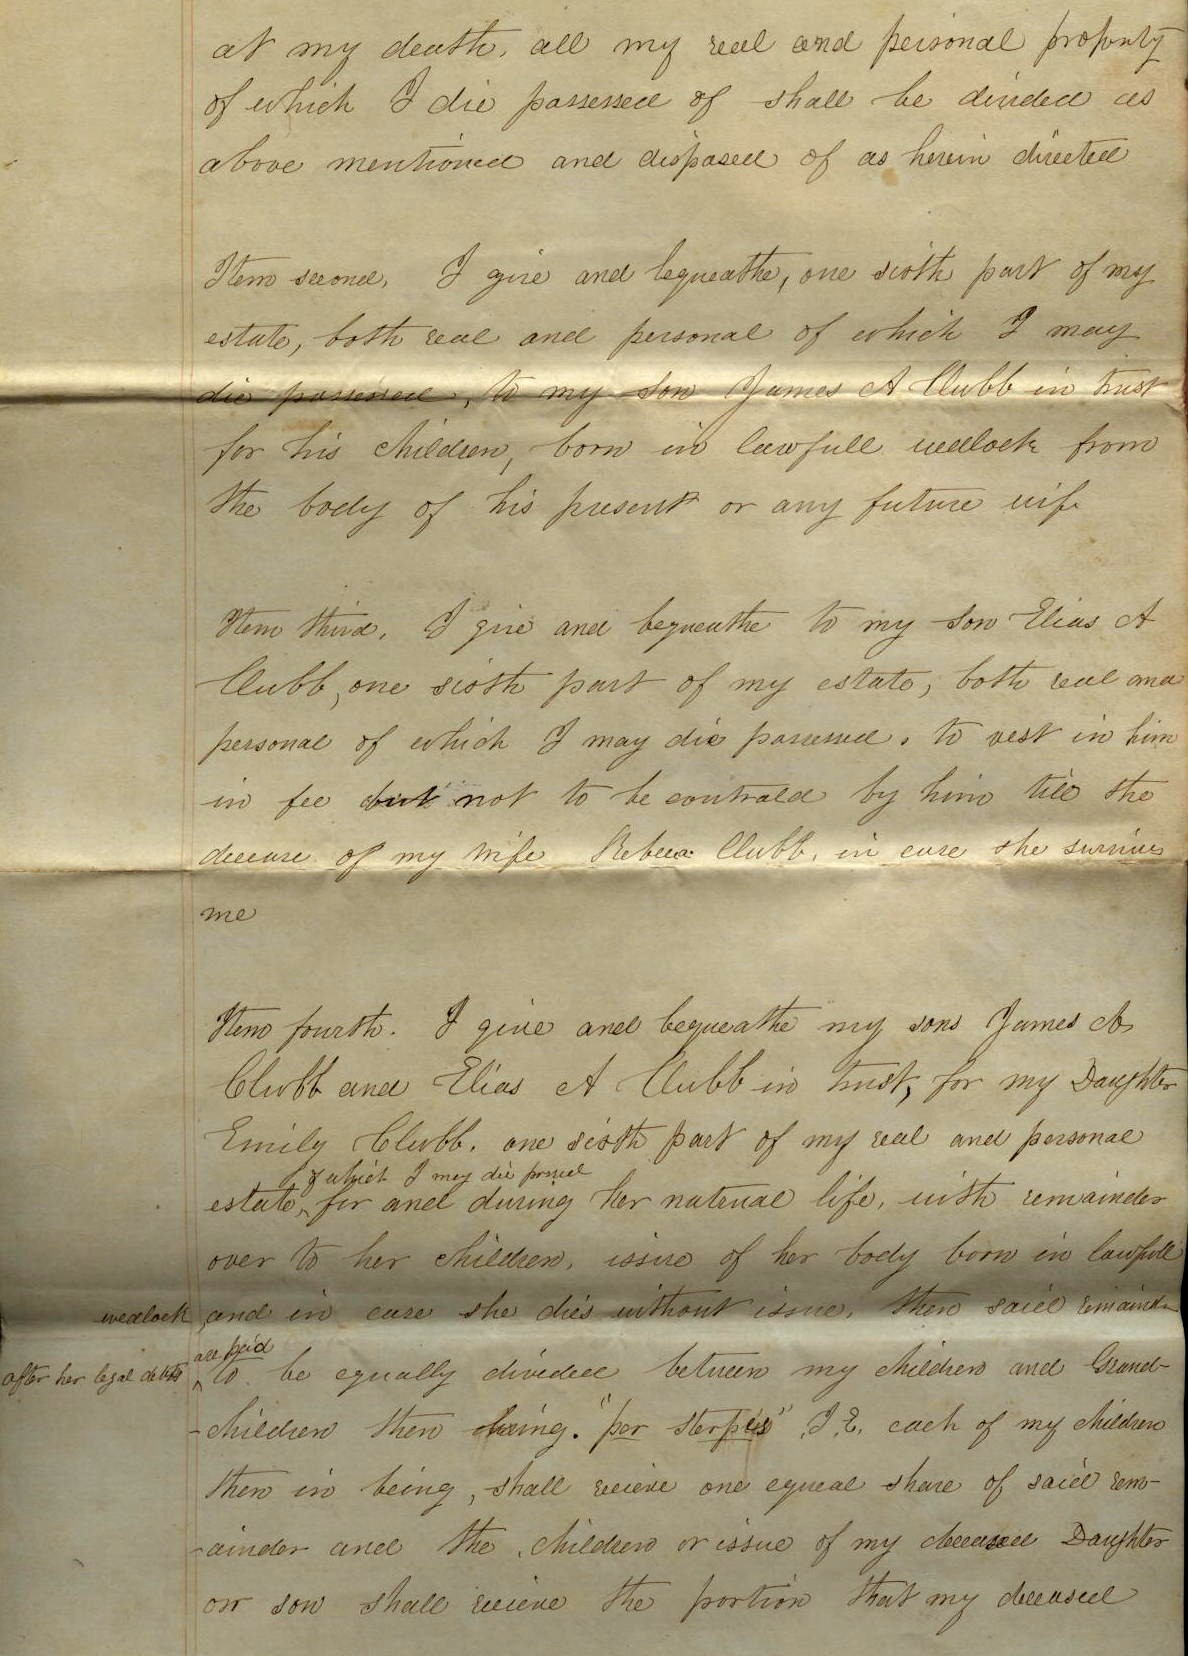 at my death, all my real and personal property
of which I die possessed of shall be divided as
above mentioned and disposed of as herein directed
Item second, I give and bequeathe, one sixth part of my
estate, both real and personal of which I may
die possessed, to my son James A Clubb in trust
for his children, born in lawfull wedlock from
the body of his present or any future wife
Item third, I give and bequeathe to my son Elias A
Clubb, one sixth part of my estate, both real and
personal of which I may die possessed, to vest in him
in fee but not to be controld by him till the
decease of my wife Rebeca Clubb, in case she survives
me
Item fourth. I give and bequeathe my sons James A
Clubb and Elias A Clubb in trust, for my Daughter
Emily Clubb, one sixth part of my real and personal
of which I may die possed
estate, for and during her natural life, with remainder
over to her children, issue of her body born in lawfull
wedlock, and in case she dies without issue, then said remainder
are paid
after her legal debts to be equally divided between my children and Grand-
-children then being. "per sterpes" I.E. each of my children
then in being, shall recieve one equal share of said rem-
-ainder and the children or issue of my deceased Daughter
or son shall recieve the portion that my deceased